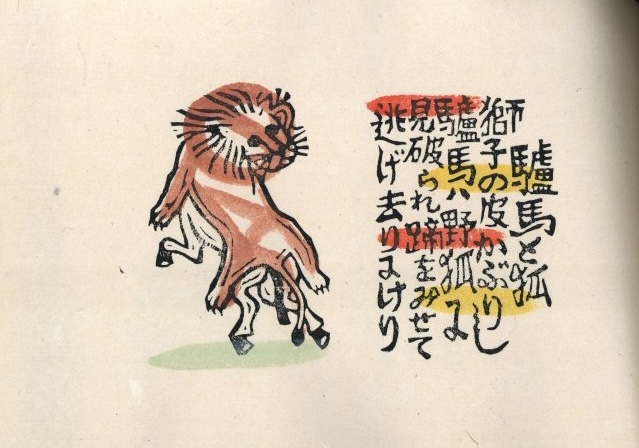 驢馬と狐
獅子の皮かぶりし
驢馬ハ野狐に
見破られ蹄をみせて
逃げ去りにけり